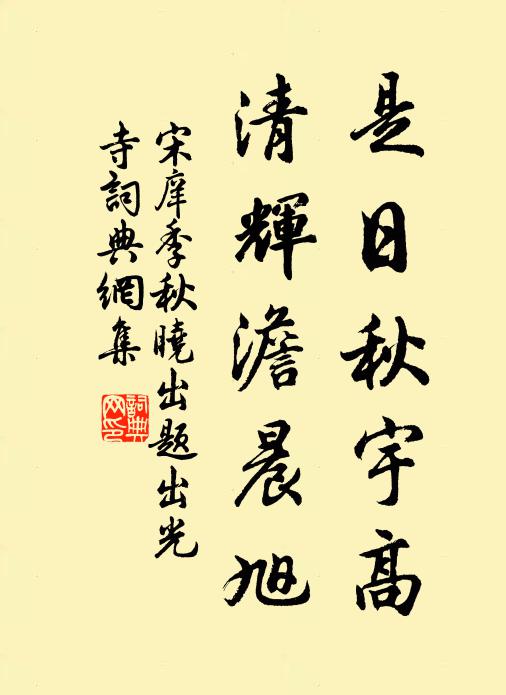 是日秋宇高
清輝澹晨旭
宋庠季秋曉出題出光
寺詞典網集
詞典
网印